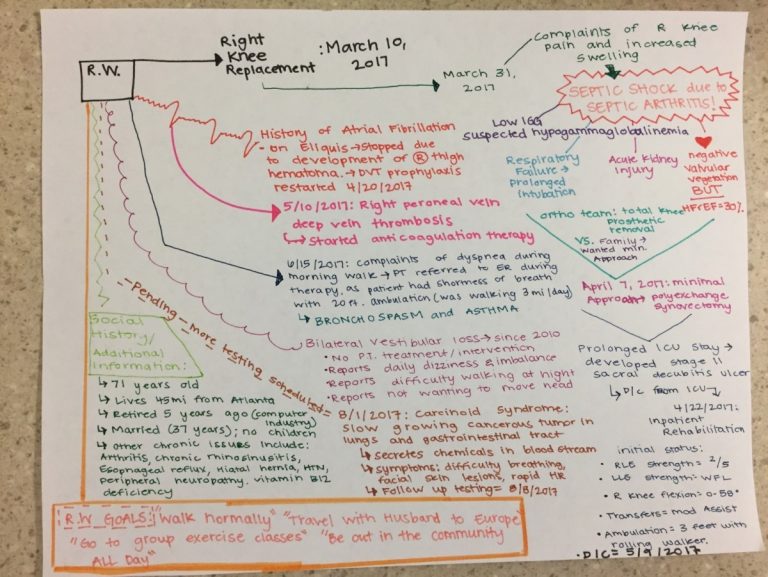 R.W.
Right
Knee
Replacement
: March 10,
2017
March 31,
2017
Complaints of R Knee
pain and increased
swelling
SEPTIC SHOCK due to
SEPTIC ARTHRITIS!
Low IGG
suspected hypogammaglobalinemia
Respiratory
Failure →
Prolonged
Intubation
Acute Kidney
Injury
negative
valvular
vegetation
BUT
HFrEF=30%
ortho team: total Knee
Prosthetic
removal
VS. Family →
wanted min.
Approach
April 7, 2017: minimal
Approach → polyexchange
synovectomy
Prolonged ICU stay →
developed stage II
sacral decubitis ulcer
↳ D/C from ICU
4/22/2017:
Inpatient
Rehabilitation
initial status:
• RLE strength = 2/5
• LLE strength: WFL
• R Knee flexion: 0-58°
• Transfers = Mod Assist
• Ambulation = 3 feet with
rolling walker.
• D/C = 5/9/2017
History of Atrial Fibrillation
- on Eliquis → Stopped due
to development of Ⓡ thigh
hematoma. → DVT prophylaxis
restarted 4/20/2017
5/10/2017: Right peroneal vein
deep vein thrombosis
↳ Started anticoagulation therapy
6/15/2017: complaints of dyspnea during
morning walk → PT referred to ER during
therapy, as patient had shormess of breath
with 20 ft. ambulation (was walking 3 mi/day)
↳ BRONCHOSPASM and ASTHMA
Bilateral Vestibular loss → since 2010
• No P.T. treatment/intervention
• Reports daily dizziness & imbalance
• Reports difficulty walking at night
• Reports not wanting to move head
- Pending - more testing scheduled =
8/1/2017: Carcinoid Syndrome:
Slow growing cancerous tumor in
lungs and gastrointestinal tract
↳ secretes chemicals in blood stream
↳ Symptoms: difficulty breathing,
facial skin lesions, rapid HR
↳ Follow up testing = 8/8/2017
Social
History/
Additional
Information:
↳ 71 years old
↳ Lives 45mi from Atlanta
↳ Retired 5 years ago (computer
industry)
↳ Married (37 years); no children
↳ other chronic issues include:
Arthritis, chronic rhinosinusitis,
Esophageal reflux, Hiatal hernia, HTN,
peripheral neuropathy, vitamin B12
deficiency
R.W GOALS: "Walk normally" "Travel with Husband to Europe"
"Go to group exercise classes" "Be out in the community
ALL Day"